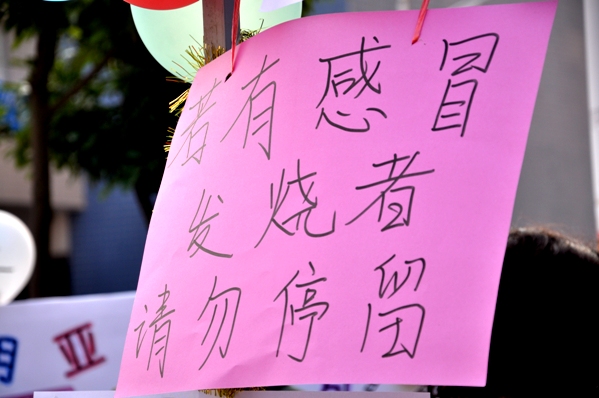 若有感冒
发烧者
请勿停留
亚